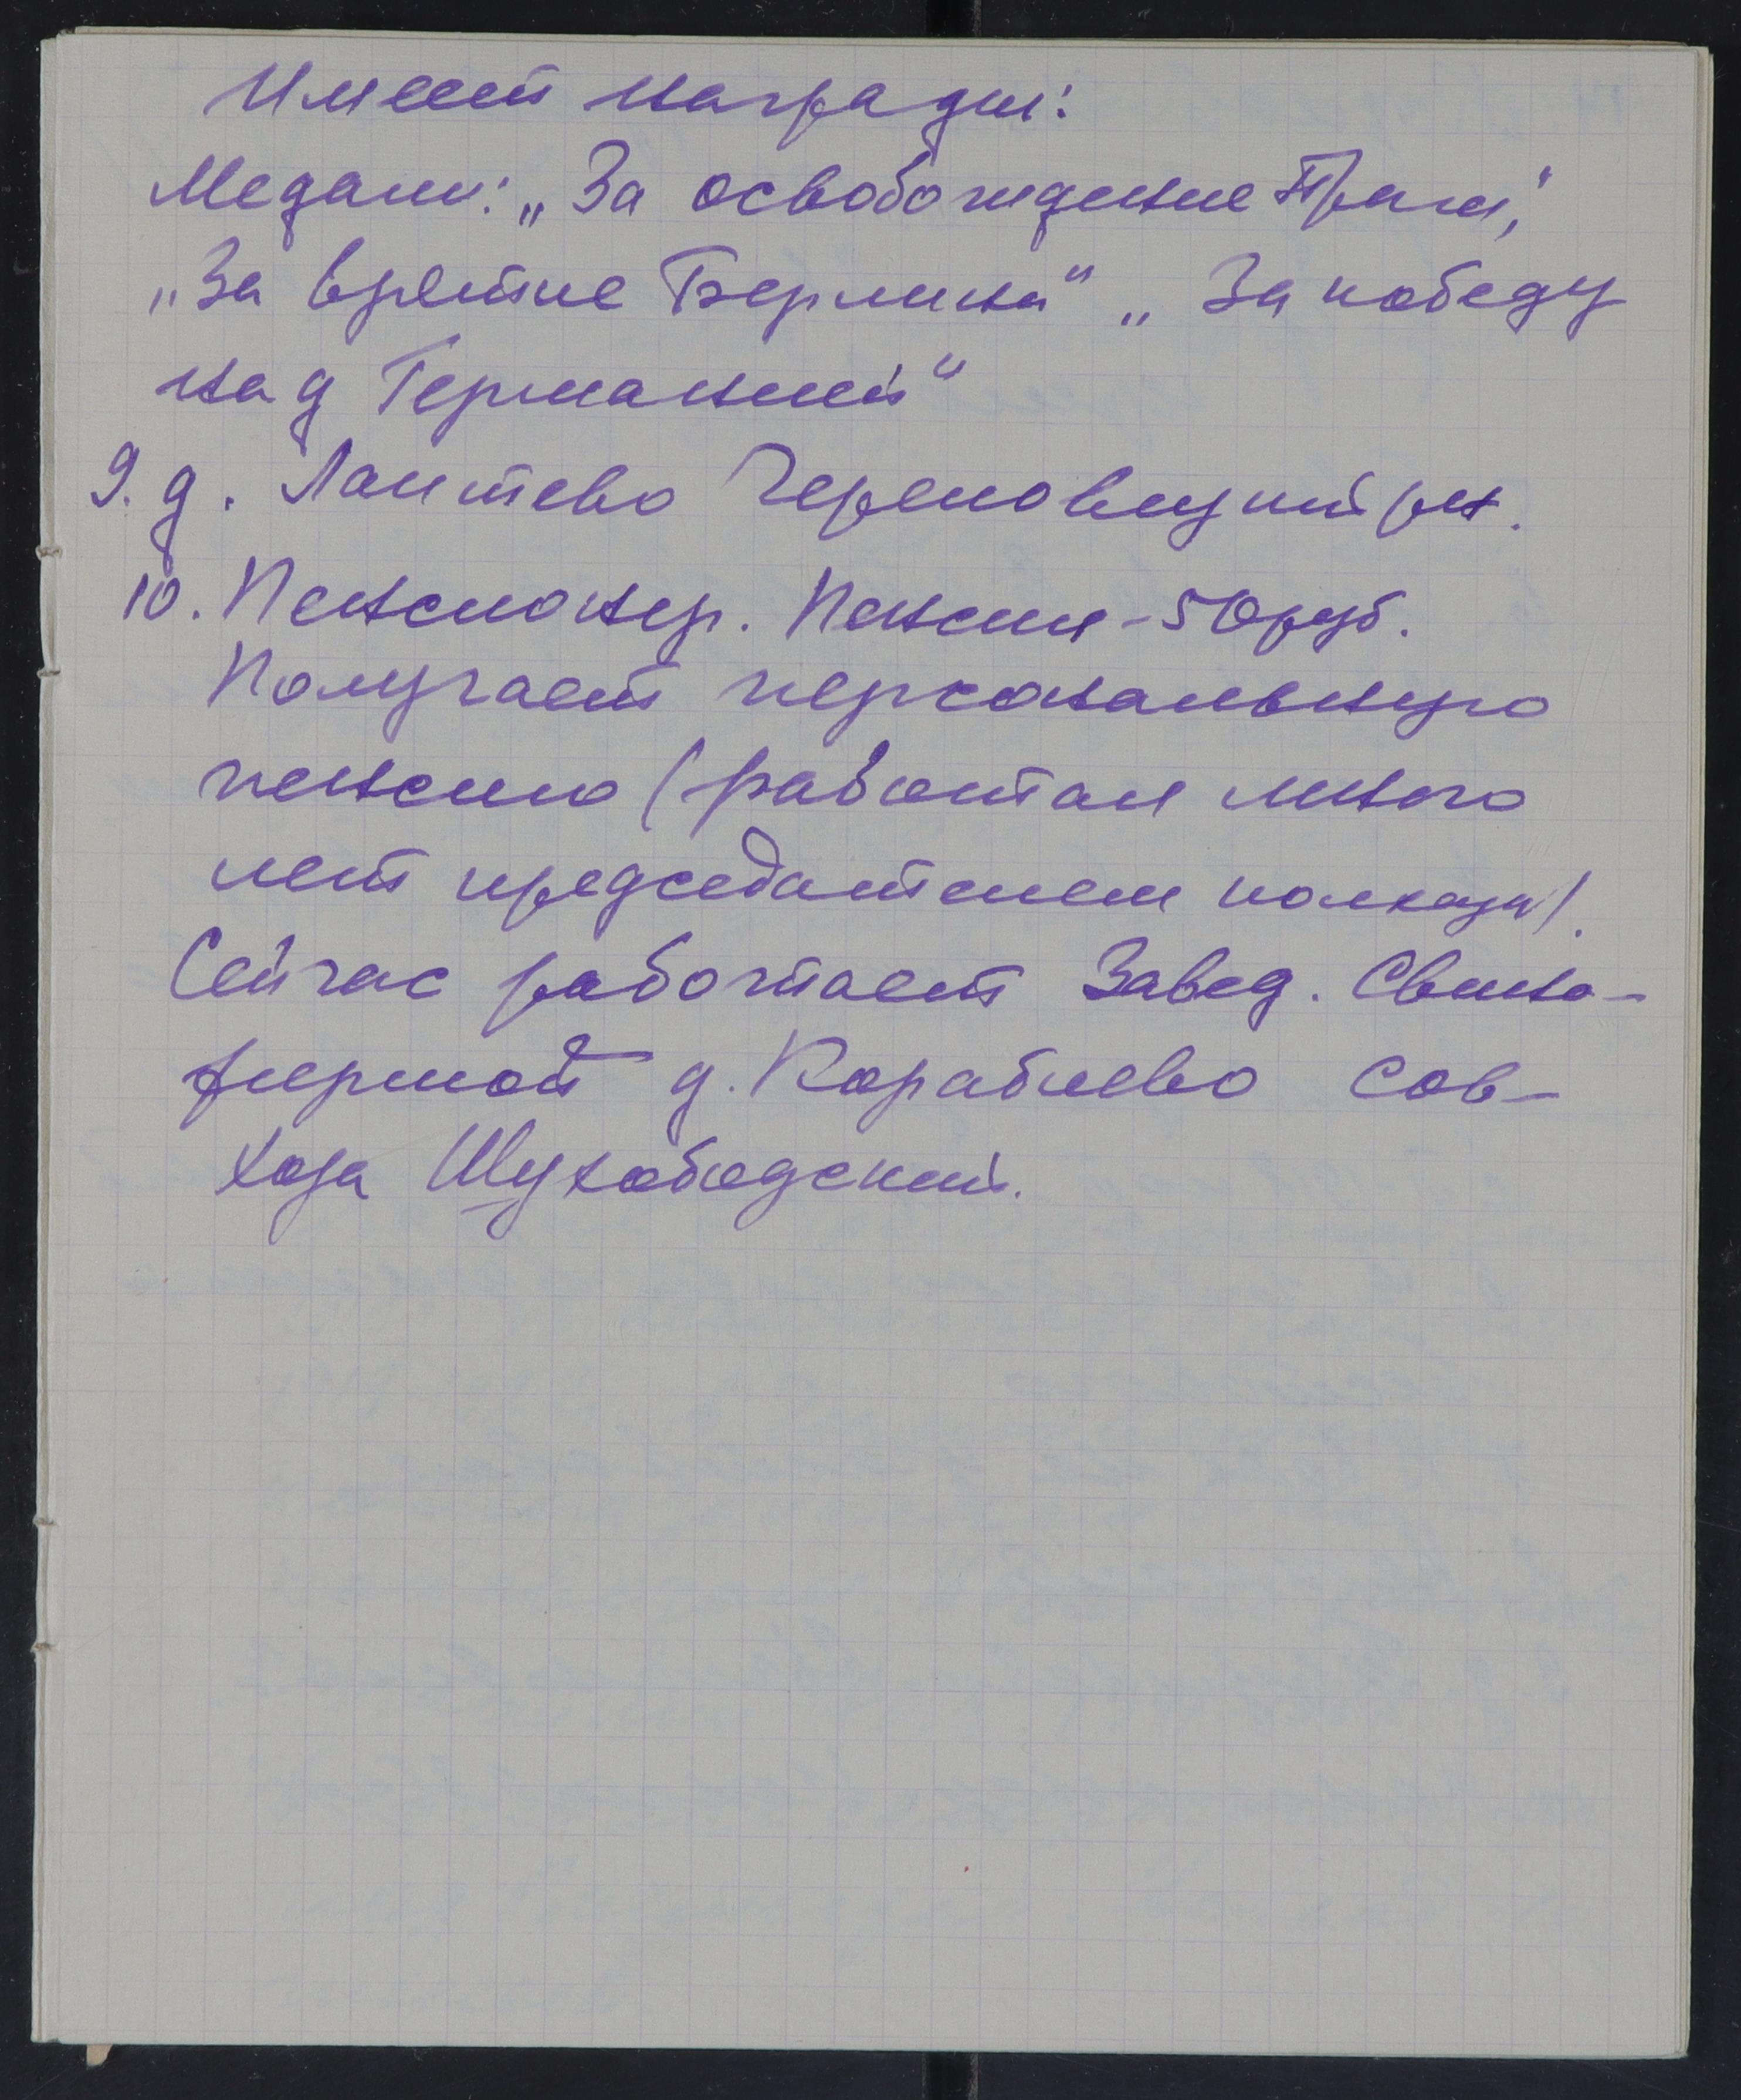 Имеет награды:
Медали: „За освобождение Праги",
„За взятие Берлина" „За победу
над Германией"
9. д. Лаптево Череповецкий р-н.
10. Пенсионер. Пенсия - 50 руб.
Получает персональную
пенсию (работал много
лет председателем колхоза).
Сейчас работает Завед. Свино-
фермой д. Кораблево сов-
хоза Шухободский.